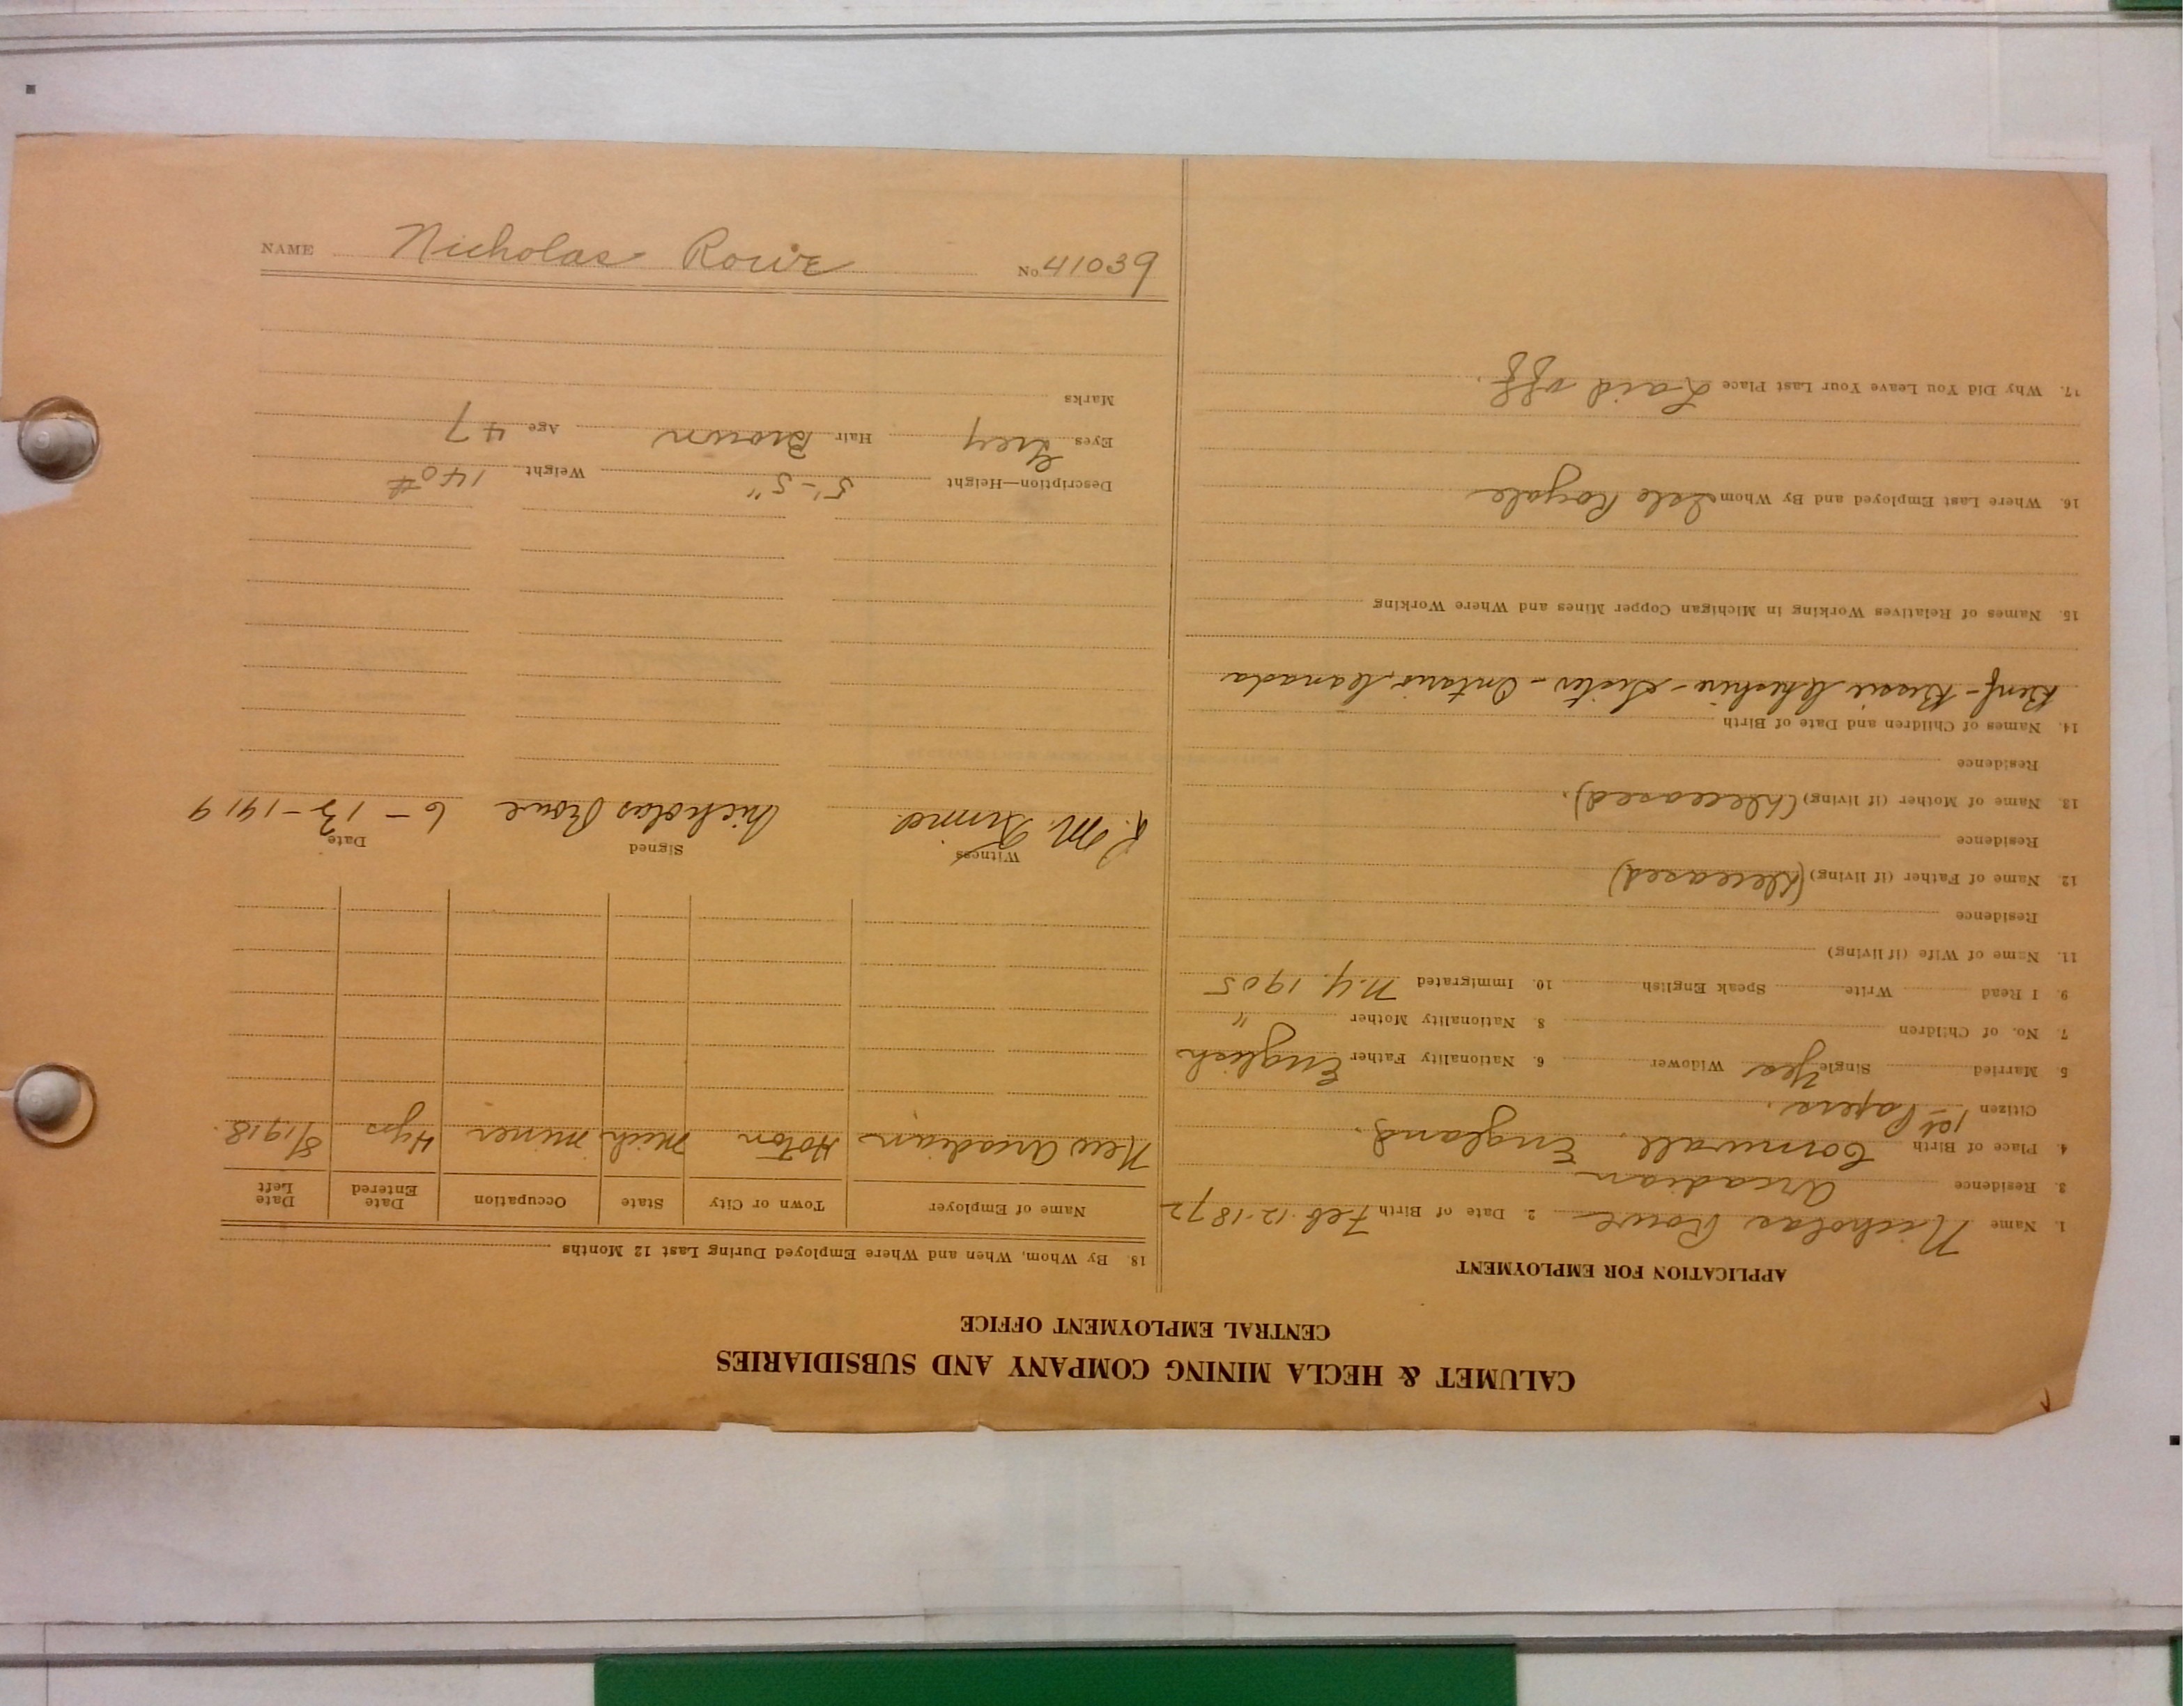 CALUMET & HECLA MINING COMPANY AND SUBSIDIARIES
CENTRAL EMPLOYMENT OFFICE
APPLICATION FOR EMPLOYMENT
1. Name Nicholas Rowe 2. Date of Birth Feb. 12-1872
3. Residence Arcadian
4. Place of Birth Cornwall. England.
Citizen 1st Papers.
5. Married Single Yes Widower 6. Nationality Father English
7. No. of Children 8. Nationality Mother "
9. I Read Write Speak English 10. Immigrated N.Y. 1905
11. Name of Wife (if living)
Residence
12. Name of Father (if living) (Deceased)
Residence
13. Name of Mother (if living) (Deceased).
Residence
14. Names of Children and Date of Birth
Benf - Bessie Cheshire - Sister - Ontario, Canada
15. Names of Relatives Working in Michigan Copper Mines and Where Working
16. Where Last Employed and By Whom Isle Royale
17. Why Did You Leave Your Last Place Laid off.
18. By Whom, When and Where Employed During Last 12 Months
Name of Employer Town or City State Occupation Date Entered Date Left
New Arcadian Hoton Mich miner 4 yrs 8/1918.
Witness Signed Date
R. M. Nicholas Rowe 6-13-1919
Description—Height 5'-5" Weight 140#
Eyes Grey Hair Brown Age 47
Marks
NAME Nicholas Rowe No 41039